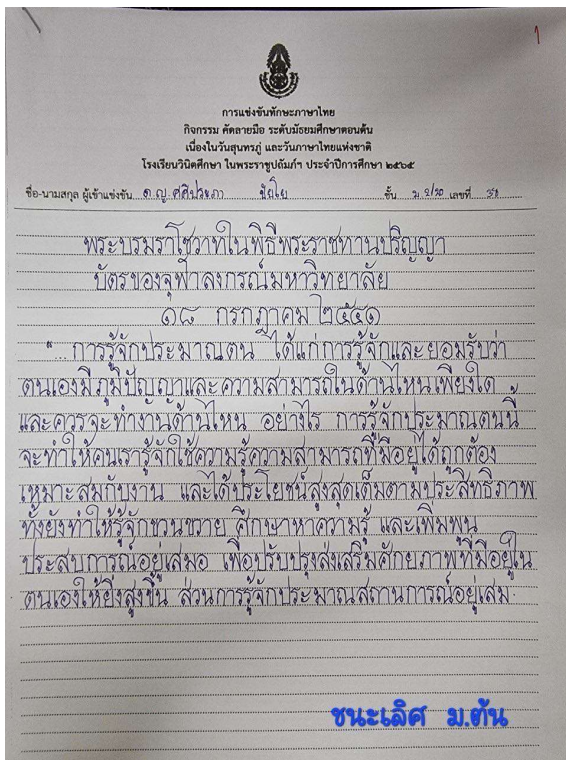 1
การแข่งขันทักษะภาษาไทย
กิจกรรม คัดลายมือ ระดับมัธยมศึกษาตอนต้น
เนื่องในวันสุนทรภู่ และวันภาษาไทยแห่งชาติ
โรงเรียนวินิตศึกษา ในพระราชูปถัมภ์ฯ ประจำปีการศึกษา ๒๕๖๕
ชื่อ-นามสกุล ผู้เข้าแข่งขัน ด.ญ. ศศิประภา ชั้น ม. เลขที่
พระบรมราโชวาทในพิธีพระราชทานปริญญา
บัตรของจุฬาลงกรณ์มหาวิทยาลัย
๑๘ กรกฎาคม ๒๕๔๑
"... การรู้จักประมาณตน ได้แก่การรู้จักและยอมรับว่า
ตนเองมีภูมิปัญญาและความสามารถในด้านไหนเพียงใด
และควรจะทำงานด้านไหน อย่างไร การรู้จักประมาณตนนี้
จะทำให้คนเรารู้จักใช้ความรู้ความสามารถที่มีอยู่ได้ถูกต้อง
เหมาะสมกับงาน และได้ประโยชน์สูงสุดเต็มตามประสิทธิภาพ
ทั้งยังทำให้รู้จักขวนขวาย ศึกษาหาความรู้ และเพิ่มพูน
ประสบการณ์อยู่เสมอ เพื่อปรับปรุงส่งเสริมศักยภาพที่มีอยู่ใน
ตนเองให้ยิ่งสูงขึ้น ส่วนการรู้จักประมาณสถานการณ์อยู่เสม
ชนะเลิศ ม.ต้น